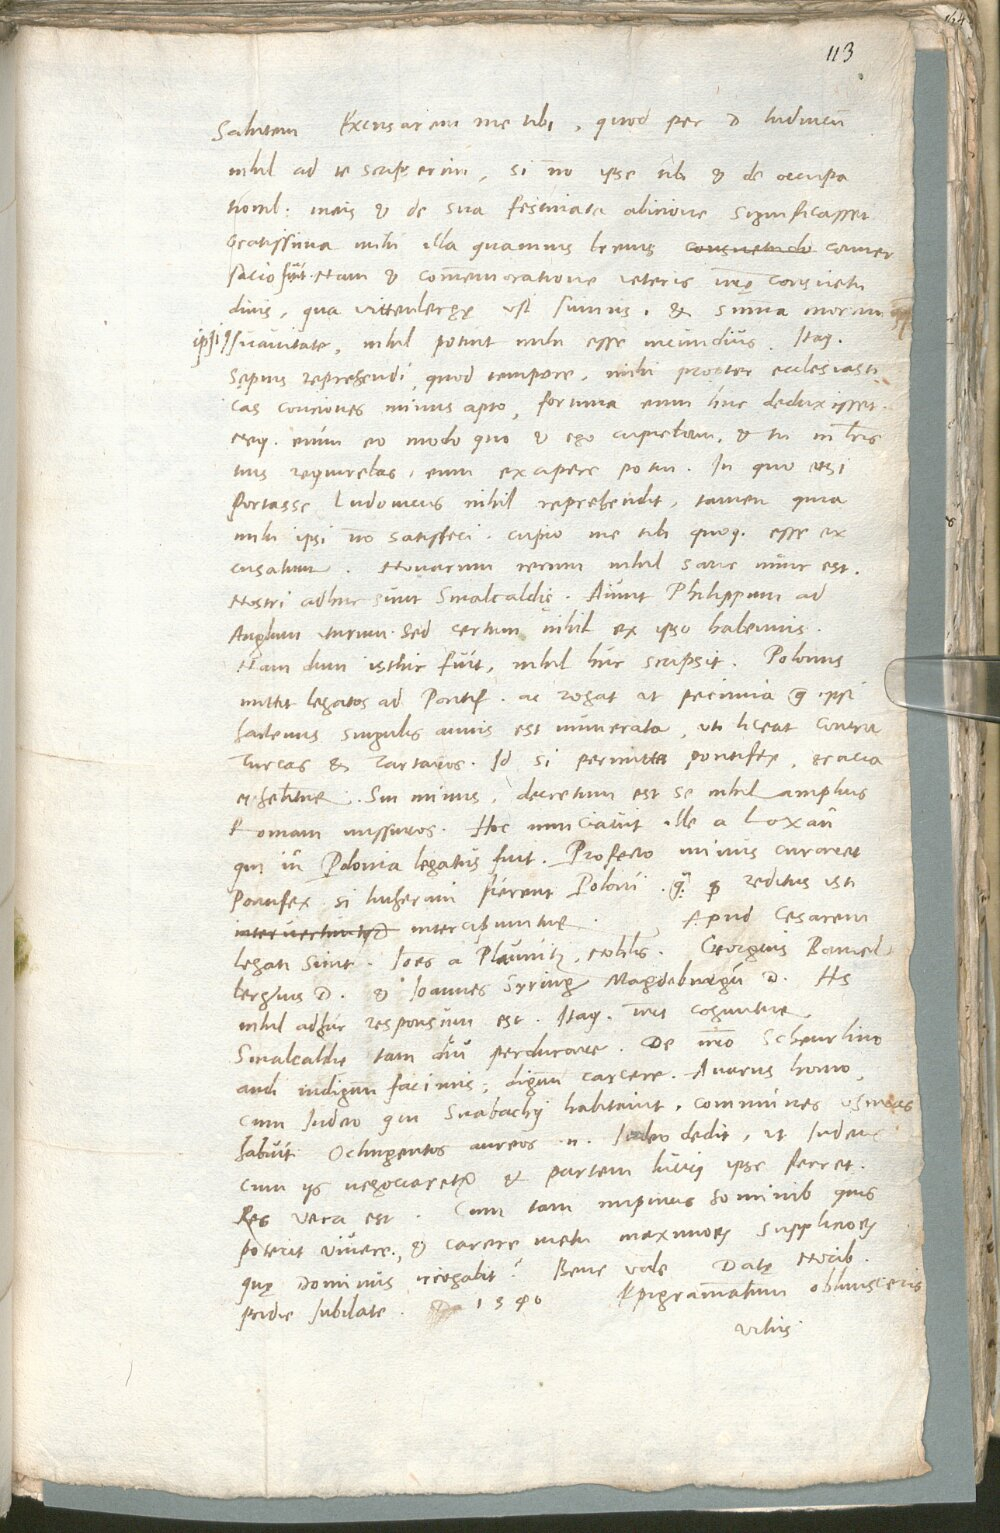 113
Salutem Excusarem me tibi, quod per D Luduicū
nihil ad te scripserim, si nō ipse tibi & de occupa
tionib: meis & de sua festinata abitione significasset
Gratissima mihi illa quamuis breuis consuetudo conuer
satio fuit. Nam & com̄emoratione ueteris nr̄ę consuetu
dinis, qua Vittenbergę usi sumus, & sum̄a morum
ipsiq suauitate, nihil potuit mihi esse iucundius. Itaq.
Sępius reprehendi quod tempore, mihi propter ecclesiasti
cas conciones minus apto, fortuna eum huc deduxisset.
Neq. enim eo modo quo & ego cupiebam, & tu in lr̄is
tuis requirebas, eum excipere potui. In quo etsi
fortasse Ludouicus nihil reprehendit, tamen quia
mihi ipsi nō satisfeci. cupio me tibi quoq. esse ex
cusatum. Nouarum rerum nihil sane nunc est.
Nostri adhuc sunt Smalcaldię. Aiunt Philippum ad
Anglum iturum. Sed certum nihil ex ipso habemus.
Nam dum isthic fuit, nihil huc scripsit. Polonus
mittit legatos ad Pontif. ac rogat ut pecunia q̄ ipsi
hactenus singulis annis est numerata, uti liceat contra
Turcas & Tartaros. Id si permittet pontifex, gracia
ei habebitur. Sin minus, decretum est se nihil amplius
Romam missuros. Hoc nunciauit ille a Loxan
qui in Polonia legatus fuit. Profecto minus curaret
Pontifex si lutherani fierent Poloni. q̄ ꝑ reditus isti
intercipiuntur. Apud Cesarem
legati sunt. Ioēs a Plaunitz, nobilis. Georgius Bamel
bergius D. & Ioannes Syring Magdeburgen̄ D. His
nihil adhuc responsum est. Itaq. nr̄i coguntur
Smalcaldię tam diu perdurare. De nr̄o Scheurlino
audi indignū facinus, dignū carcere. Auarus homo,
cum Iudeo qui Suabachij habitauit, communes usuras
habuit Octingentos aureos .n. Iudeo dedit, ut Iudeus
cum ijs negociaretur & partem lucrj ipse ferret.
Res vera est. Cum tam impiius hominib quis
poterit viuere, & carere metu maximorū supplicioru
quę Dominus irrogabit? Bene vale Datę Norib.
pridie Iubilate. 1540 Epigram̄atum obliuisceris
Vitus